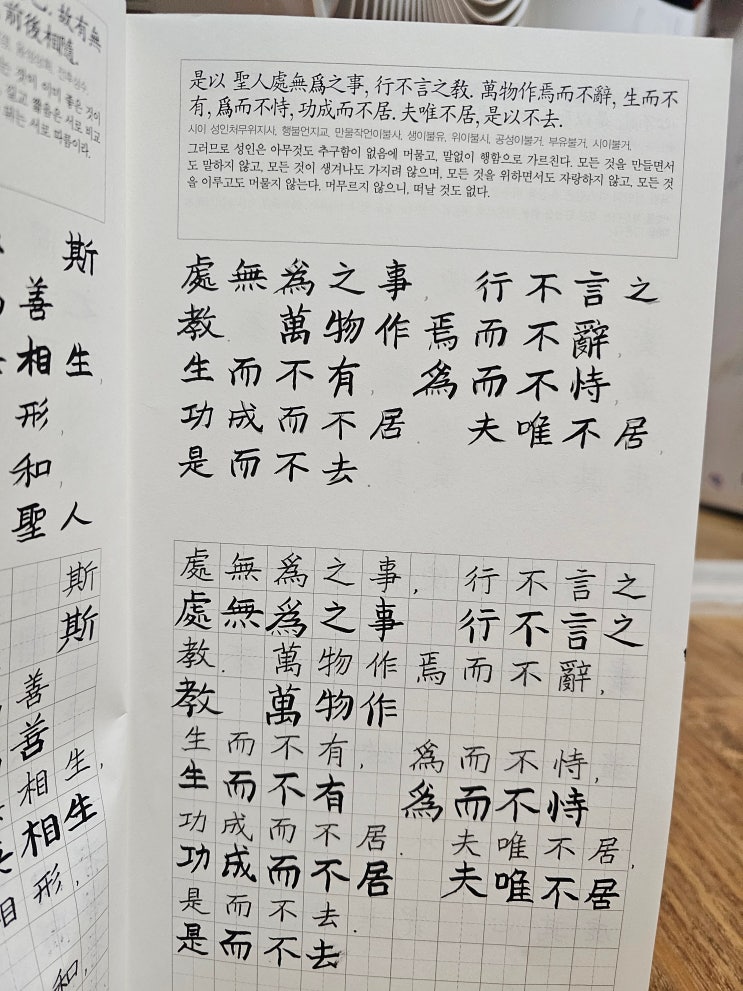 故有無
前後相隨.
것이 이미 좋은 것이
서로 비교
서로 따름이라.
斯
善
相生,
形,
和,
聖人
斯
斯
善
善
相生,
相生
形,
和,
是以 聖人處無爲之事, 行不言之敎. 萬物作焉而不辭, 生而不
有, 爲而不恃, 功成而不居. 夫唯不居, 是以不去.
시이 성인처무위지사, 행불언지교, 만물작언이불사, 생이불유, 위이불시, 공성이불거, 부유불거, 시이불거,
그러므로 성인은 아무것도 추구함이 없음에 머물고, 말없이 행함으로 가르친다. 모든 것을 만들면서
도 말하지 않고, 모든 것이 생겨나도 가지려 않으며, 모든 것을 위하면서도 자랑하지 않고, 모든 것
을 이루고도 머물지 않는다. 머무르지 않으니, 떠날 것도 없다.
處無爲之事, 行不言之
教. 萬物作焉而不辭,
生而不有, 爲而不恃,
功成而不居. 夫唯不居,
是而不去.
處無爲之事, 行不言之
處無爲之事 行不言之
教. 萬物作焉而不辭,
教 萬物作
生而不有, 爲而不恃,
生而不有 爲而不恃
功成而不居. 夫唯不居,
功成而不居 夫唯不居
是而不去.
是而不去